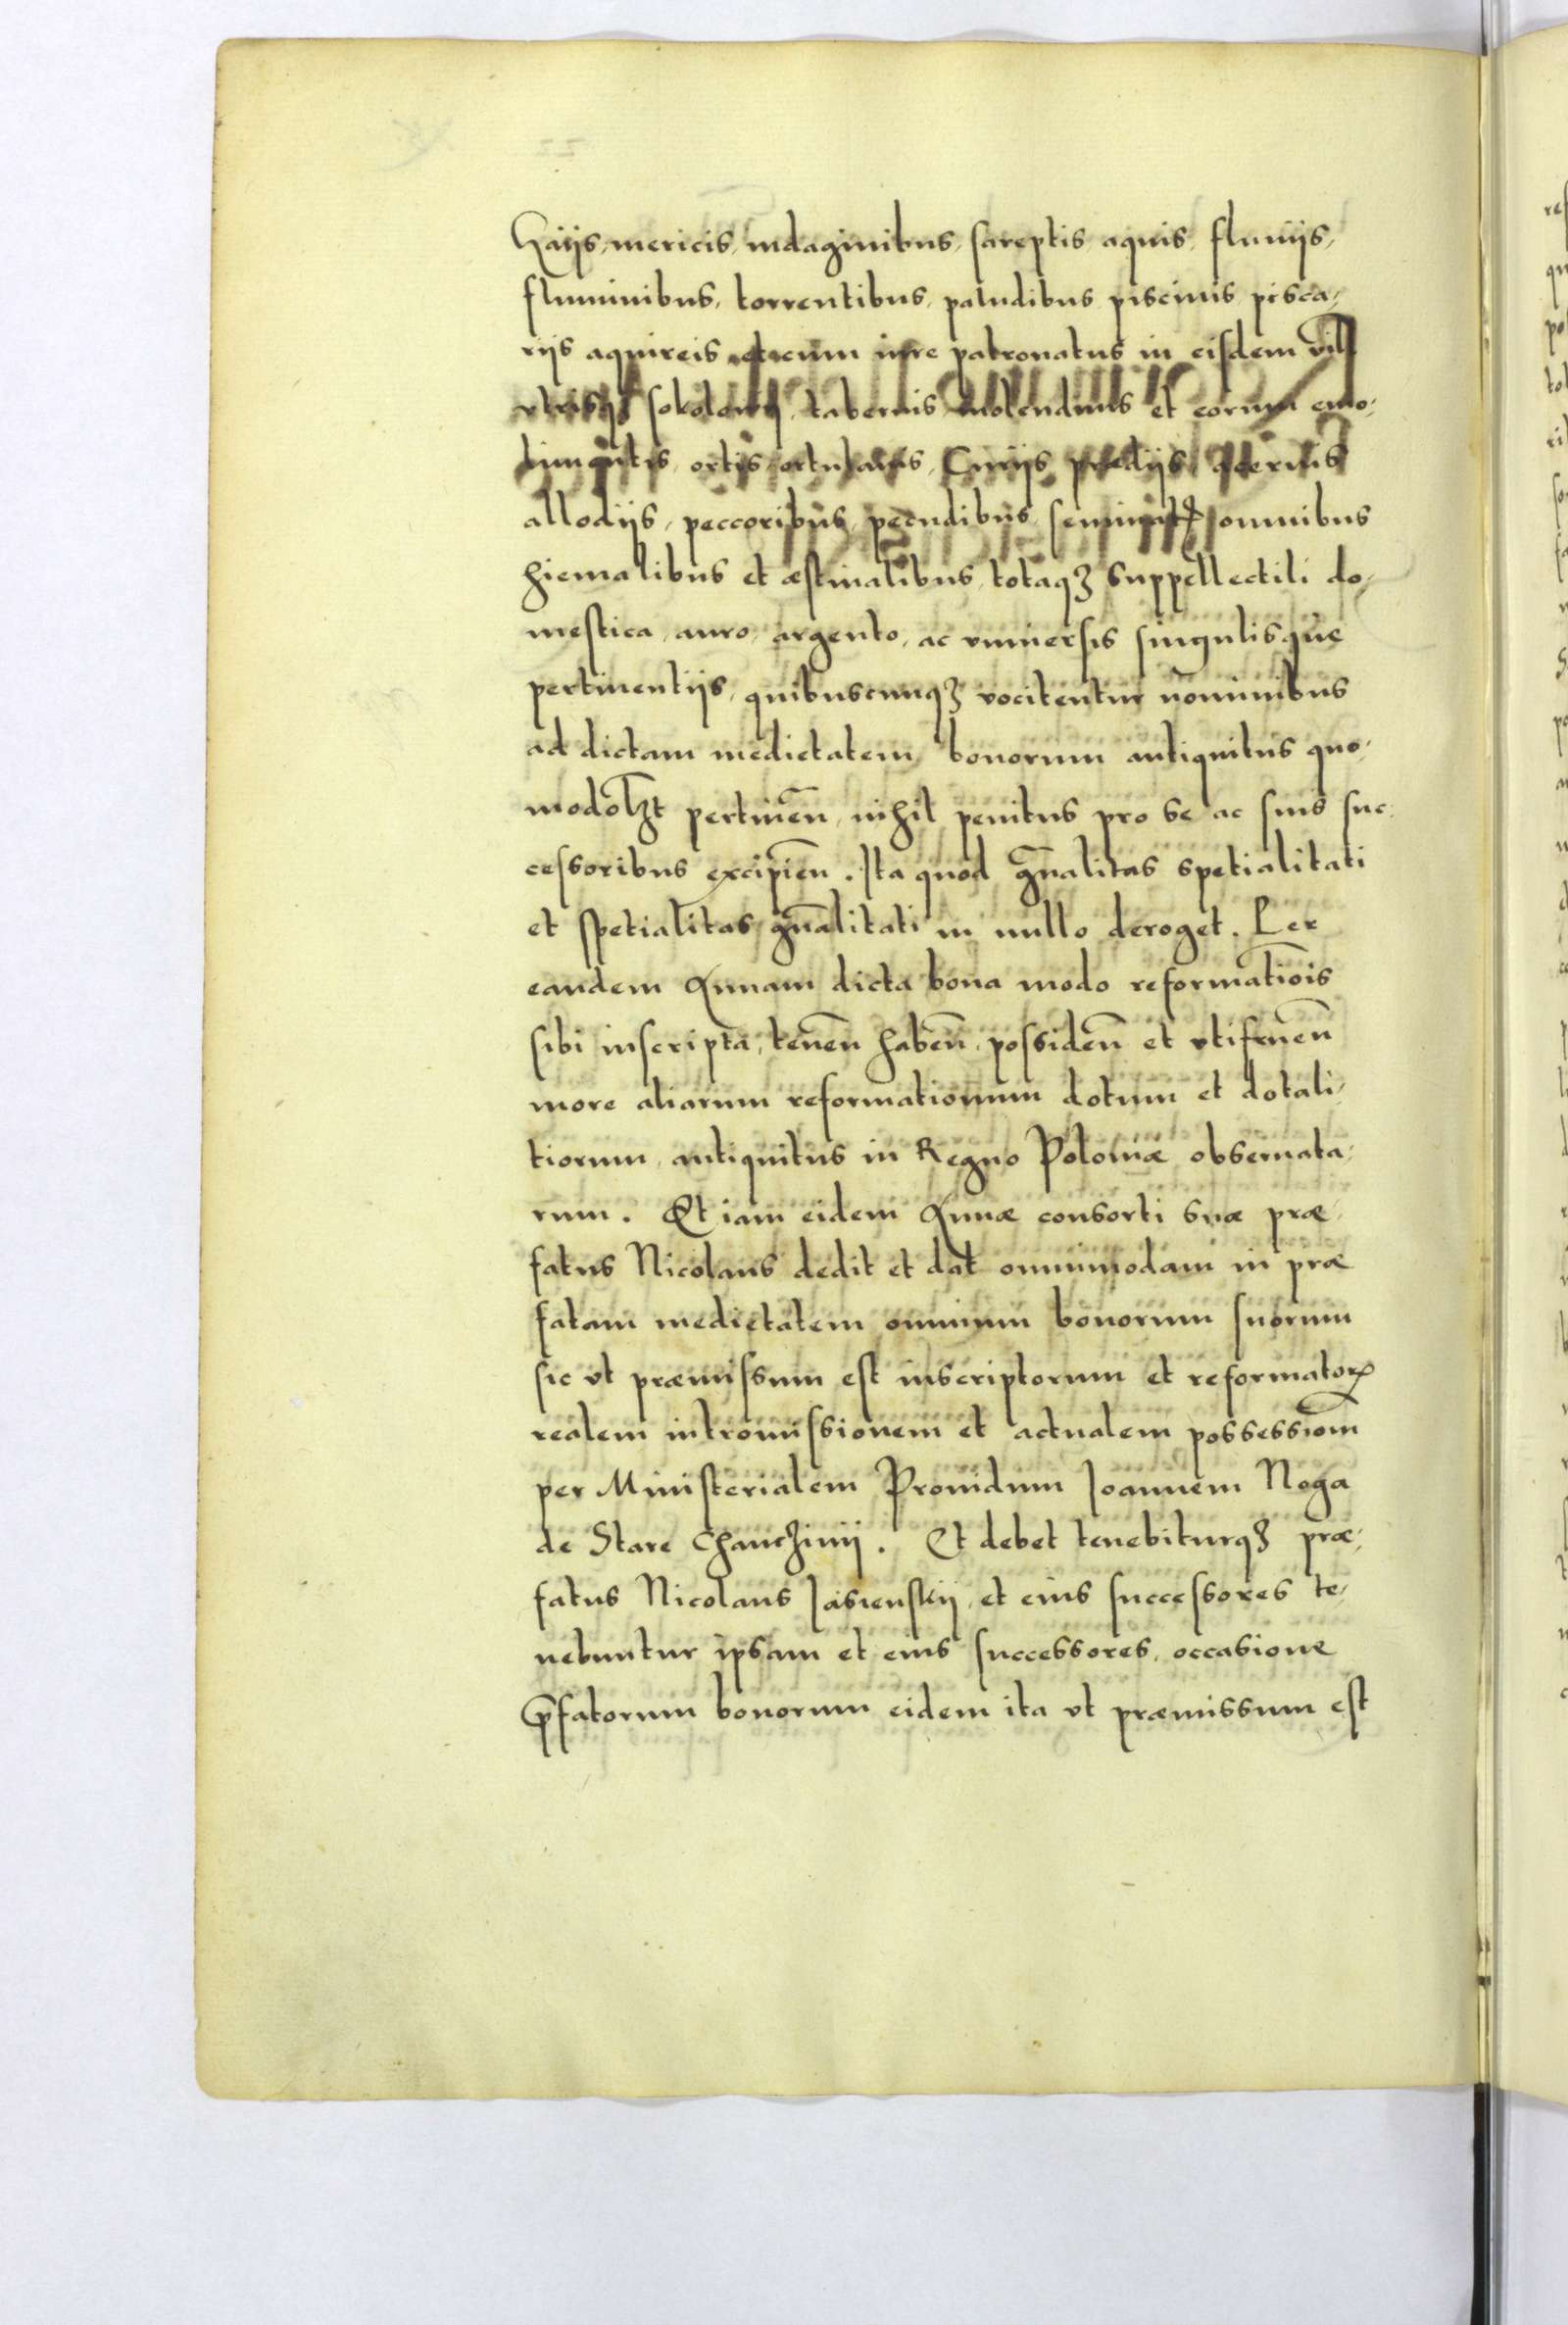 Gaijs, mericis, indaginibus, sareptis aquis, fluuijs,
fluminibus, torrentibus, paludibus piscinis pisca,
rijs aquireis et cum iure patronatus in eisdem vill
vtrisqꝫ sokolowij, tabernis molendinis et eorum emo,
limentis, ortis ortulanis, Curijs prædijs aceruis
allodijs, peccoribus, pecudibus, seminatꝭ omnibus
hiemalibus et æstiualibus, totaqꝫ suppellectili do,
mestica, auro, argento, ac vniuersis singulisque
pertinentijs, quibuscunqꝫ vocitentur nominibus
ad dictam medietatem bonorum antiquitus quo,
modolꝫt pertineñ, nihil penitus pro se ac suis suc,
cessoribus excipieñ. Ita quod gñalitas spetialitati
et spetialitas gñalitati in nullo deroget. Per
eandem Annam dicta bona modo reformatiōis
sibi inscripta, teneñ habeñ, possideñ et vtifrueñ
more aliarum reformationum dotum et dotali,
tiorum, antiquitus in Regno Poloniæ obseruata,
rum. Et iam eidem Annæ consorti suæ præ,
fatus Nicolaus dedit et dat omnimodam in præ
fatam medietatem omnium bonorum suorum
sic vt præmissum est inscriptorum et reformatoꝝ
realem intromissionem et actualem possessiōm
per Ministerialem Prouidum Joannem Noga
de Stare Chanczinij. Et debet tenebiturqꝫ præ,
fatus Nicolaus Jasienskij, et eius successores te,
nebuntur ipsam et eius successores, occasione
p̄fatorum bonorum eidem ita vt præmissum est